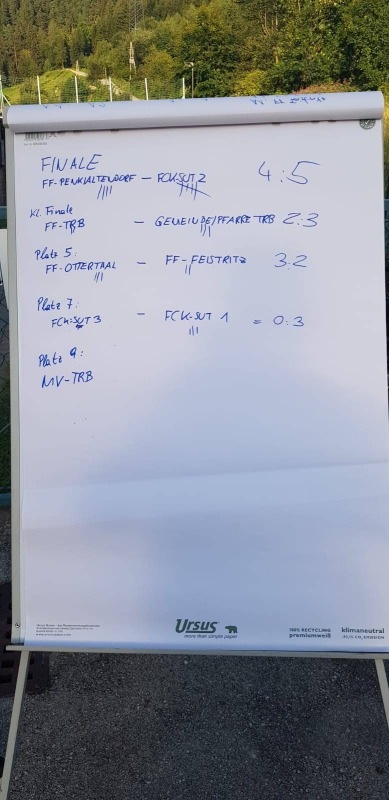 FINALE
FF-PENK/ALTENDORF – FCK-SUT 2 4:5
Kl. Finale
FF-TRB – GEMEINDE/PFARRE TRB 2:3
Platz 5:
FF-OTTERTHAL – FF-FEISTRITZ 3:2
Platz 7:
FCK-SUT 3 – FCK-SUT 1 = 0:3
Platz 9:
MV-TRB
Ursus
more than simple paper
100% RECYCLING
premiumweiß
klimaneutral